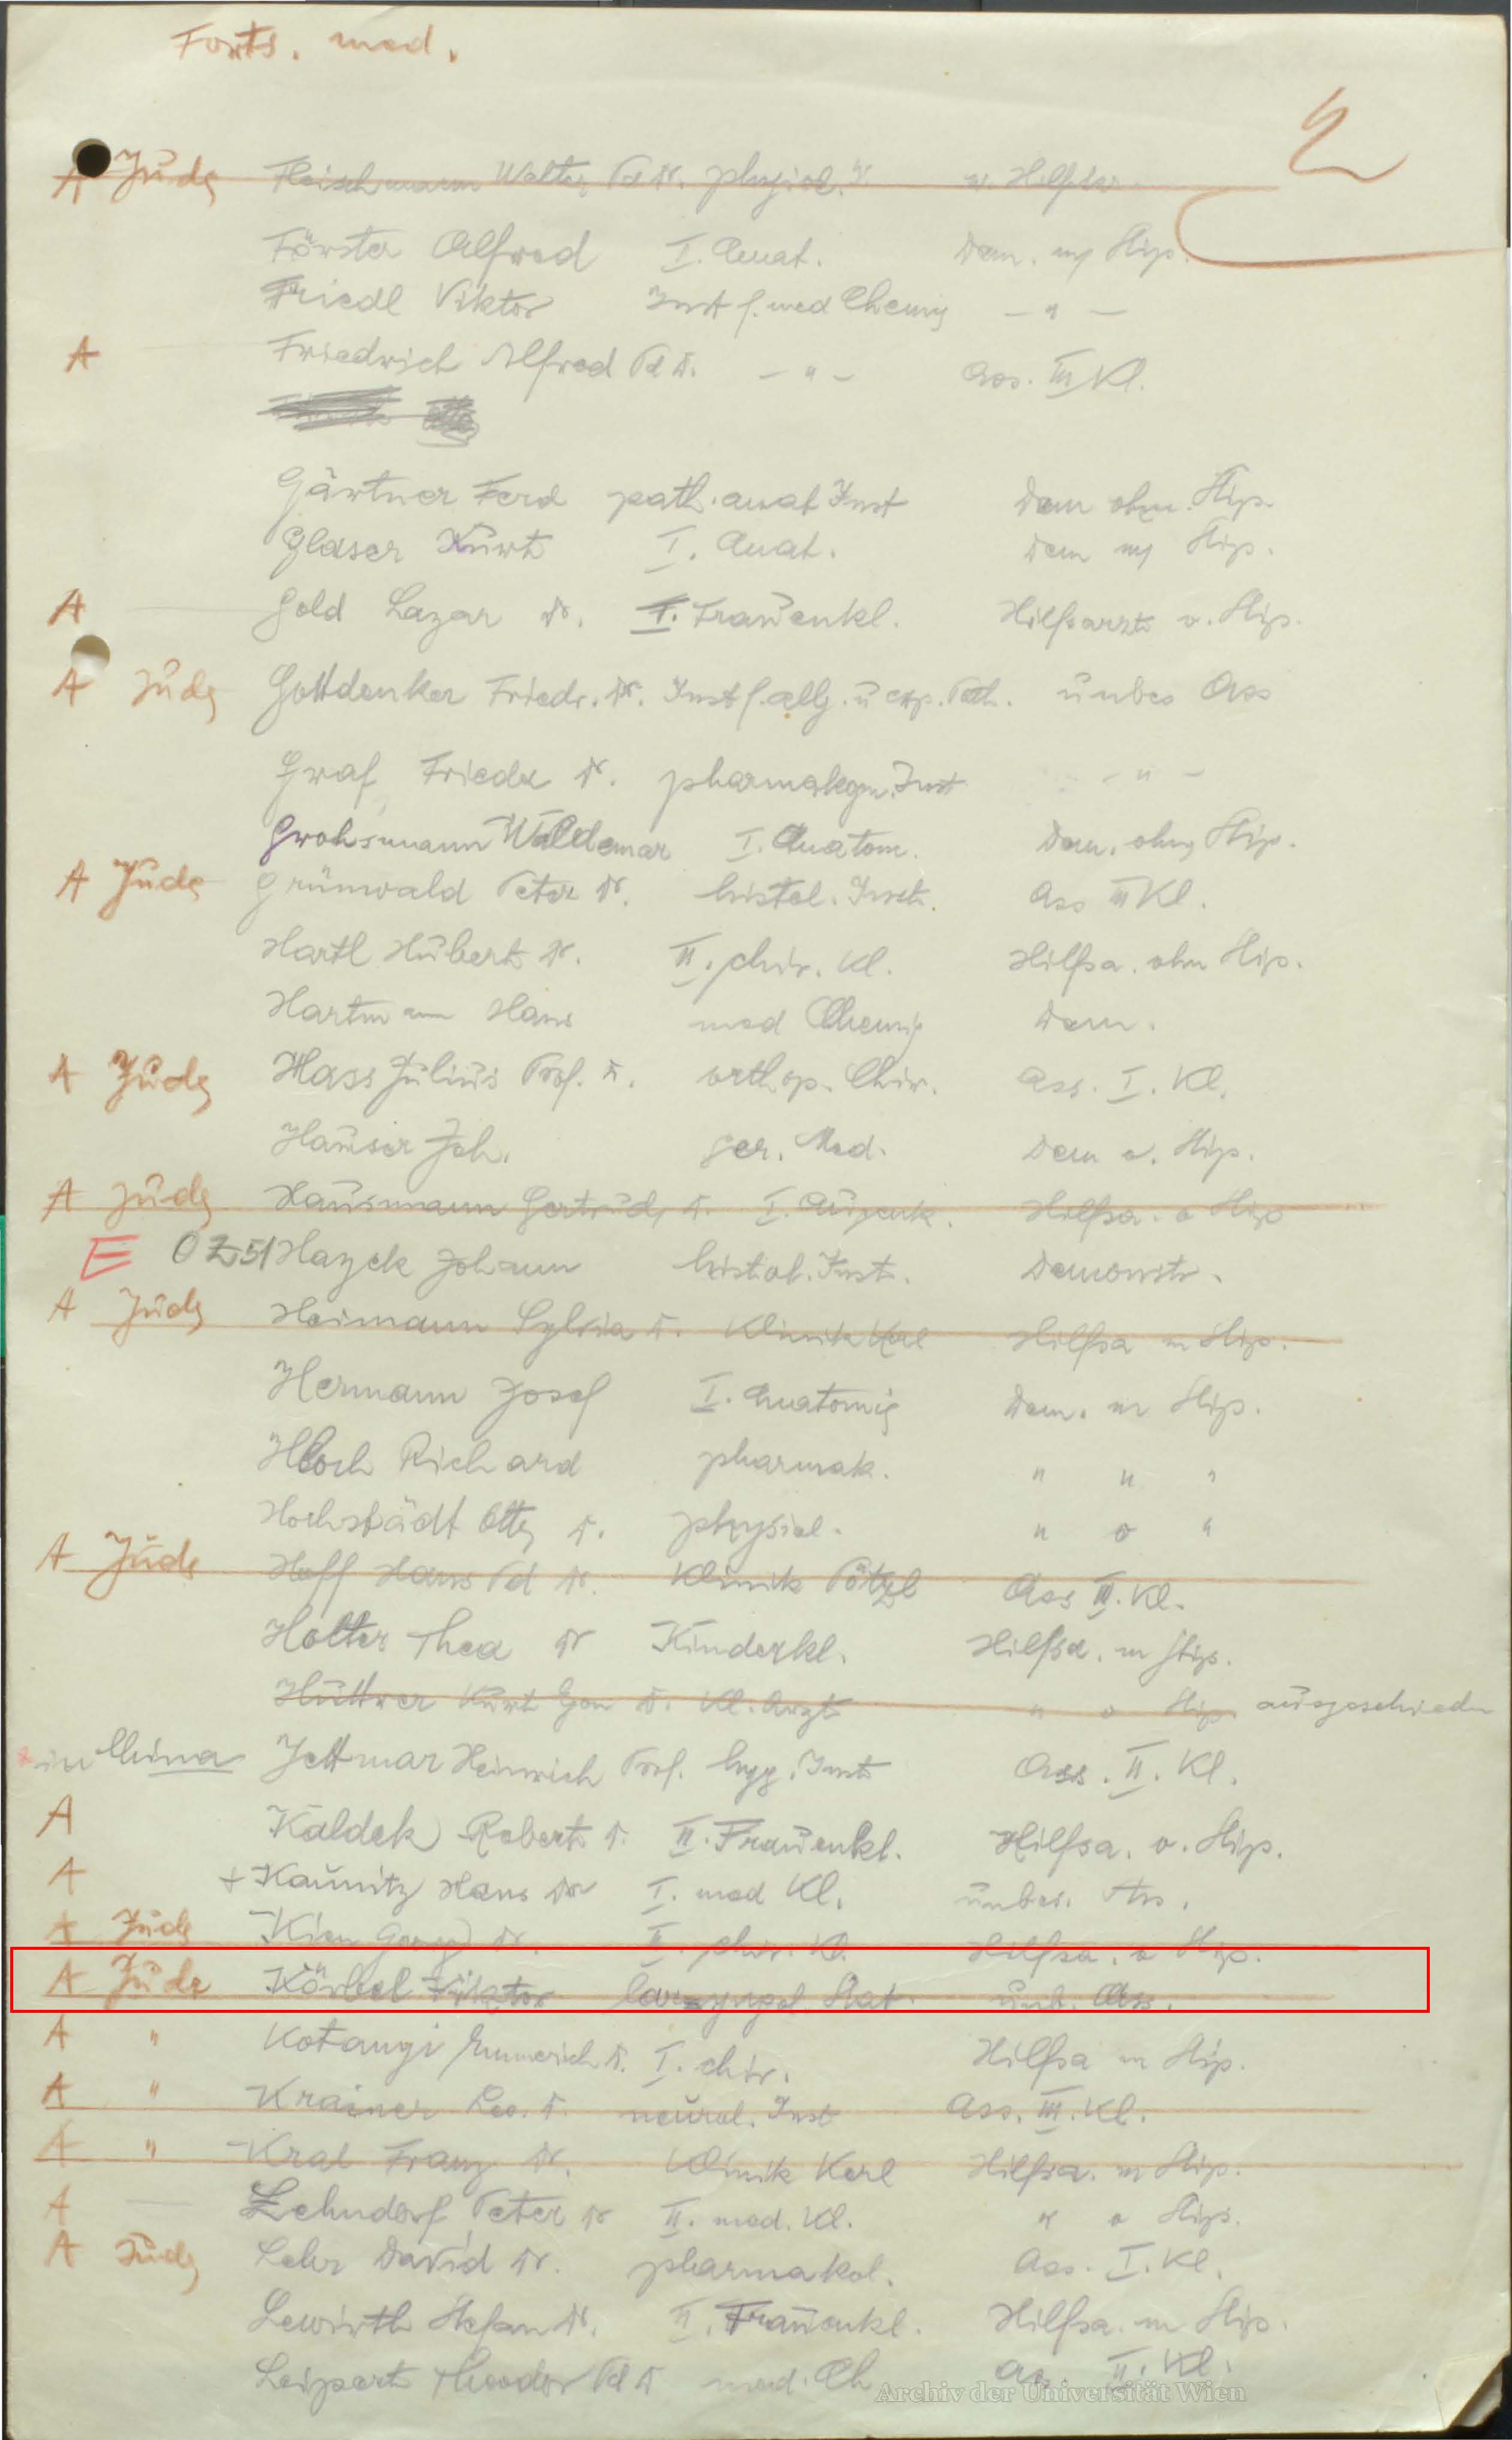 Forts. med.
2
A Jude Fleischmann Walter Pd Dr. physiol. w. Hilfskr.
Förster Alfred I. Anat. Dem. m Stip.
Friedl Viktor Inst f. med Chemie - " -
A Friedrich Alfred Pd Dr. - " - Ass. III Kl.
Gärtner Ferd path. anat Inst Dem ohne Stip.
Glaser Kurt I. Anat. Dem m Stip.
A Gold Lazar Dr. I. Frauenkl. Hilfsarzt o. Stip.
A Jude Gottdenker Friedr. Dr. Inst f. allg. u exp. Path. unbes Ass
Graf Frieda Dr. pharmakogn. Inst - " -
Grohsmann Waldemar I. Anatom. Dem. ohne Stip.
A Jude Grünwald Peter Dr. histol. Inst. Ass III Kl.
Hartl Hubert Dr. II. chir. Kl. Hilfsa. ohne Stip.
Hartmann Hans med Chemie Dem.
A Jude Hass Julius Prof. Dr. orthop. Chir. Ass. I. Kl.
Hauser Joh. ger. Med. Dem o. Stip.
A Jude Hausmann Gertrude Dr. I. Augenk. Hilfsa. o Stip
E OZ 51 Hayek Johann histol. Inst. Demonstr.
A Jude Heimann Sylvia Dr. Klinik Kerl Hilfsa m Stip.
Hermann Josef I. Anatomie Dem. m Stip.
Hoch Richard pharmak. " " "
Hochstädt Otto Dr. physiol. " o "
A Jude Hoff Hans Pd Dr. Klinik Pötzl Ass III. Kl.
Holter Thea Dr Kinderkl. Hilfsa. m Stip.
Hüttner Kurt Egon Dr. Kl. Arzt " o Stip. ausgeschieden
in China Jettmar Heinrich Prof. hyg. Inst Ass. II. Kl.
A Kaldek Robert Dr. II. Frauenkl. Hilfsa. o. Stip.
A + Kaunitz Hans Dr I. med Kl. unbes. Ass.
A Jude Kien Georg Dr. II. chir. Kl. Hilfsa. o Stip.
A Jude Körbel Viktor laryngol. Stat. unb. Ass.
A " Kotanyi Emmerich Dr. I. chir. Hilfsa m Stip.
A " Krainer Leo. Dr. neurol. Inst Ass. III. Kl.
A " Kral Franz Dr. Klinik Kerl Hilfsa. m Stip.
A Lehndorf Peter Dr II. med. Kl. " o Stip.
A Jude Lehr David Dr. pharmakol. Ass. I. Kl.
Lewirth Stefan Dr. II. Frauenkl. Hilfsa. m Stip.
Leipert Theodor Pd Dr med. Ch Ass. II. Kl.
Archiv der Universität Wien